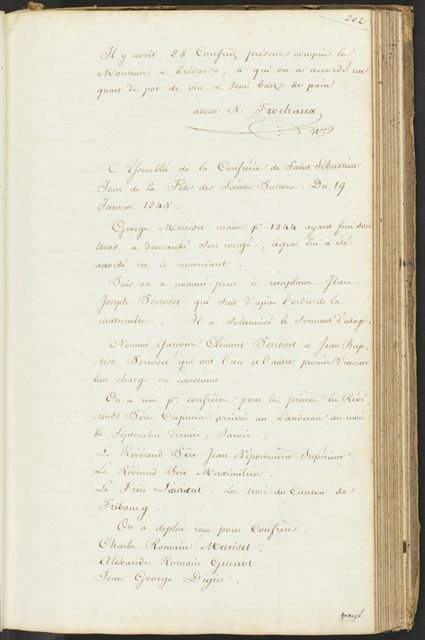 202
Il y avoit 35 Confrères présens compris le
Monsieur & Brévards, à qui on a accordé un
quart de pot de vin & demi batz de pain.
atteste N. Frochaux
Assemblée de la Confrérie de Saint Sébastien
Jour de la Fête des Saints Patrons. Du 19
Janvier 1845.
George Muriset maire pr. 1844 ayant fini son
tems a demandé son congé, lequel lui a été
accordé en le remerciant.
Puis on a nommé pour le remplacer Jean
Joseph Perroset qui suit d'après l'ordre de la
matricule. Il a solemnisé le serment d'usage.
Nommé garçons Clément Perroset & Jean Bap-
tiste Perroset qui ont l'un et l'autre promis d'exercer
leur charge en conscience.
On a reçu pr. confrères pour la prière les Révé-
-rends Pères Capucins arrivés au Landeron au mois
de Septembre dernier, Savoir :
Le Révérend Père Jean Népomucène Supérieur
Le Révérend Père Maximilien.
Le Frère Laurent. Les trois du Canton de
Fribourg.
On a de plus reçu pour Confrères.
Charles Romain Muriset.
Alexandre Romain Guenot
Jean George Digier.
payé